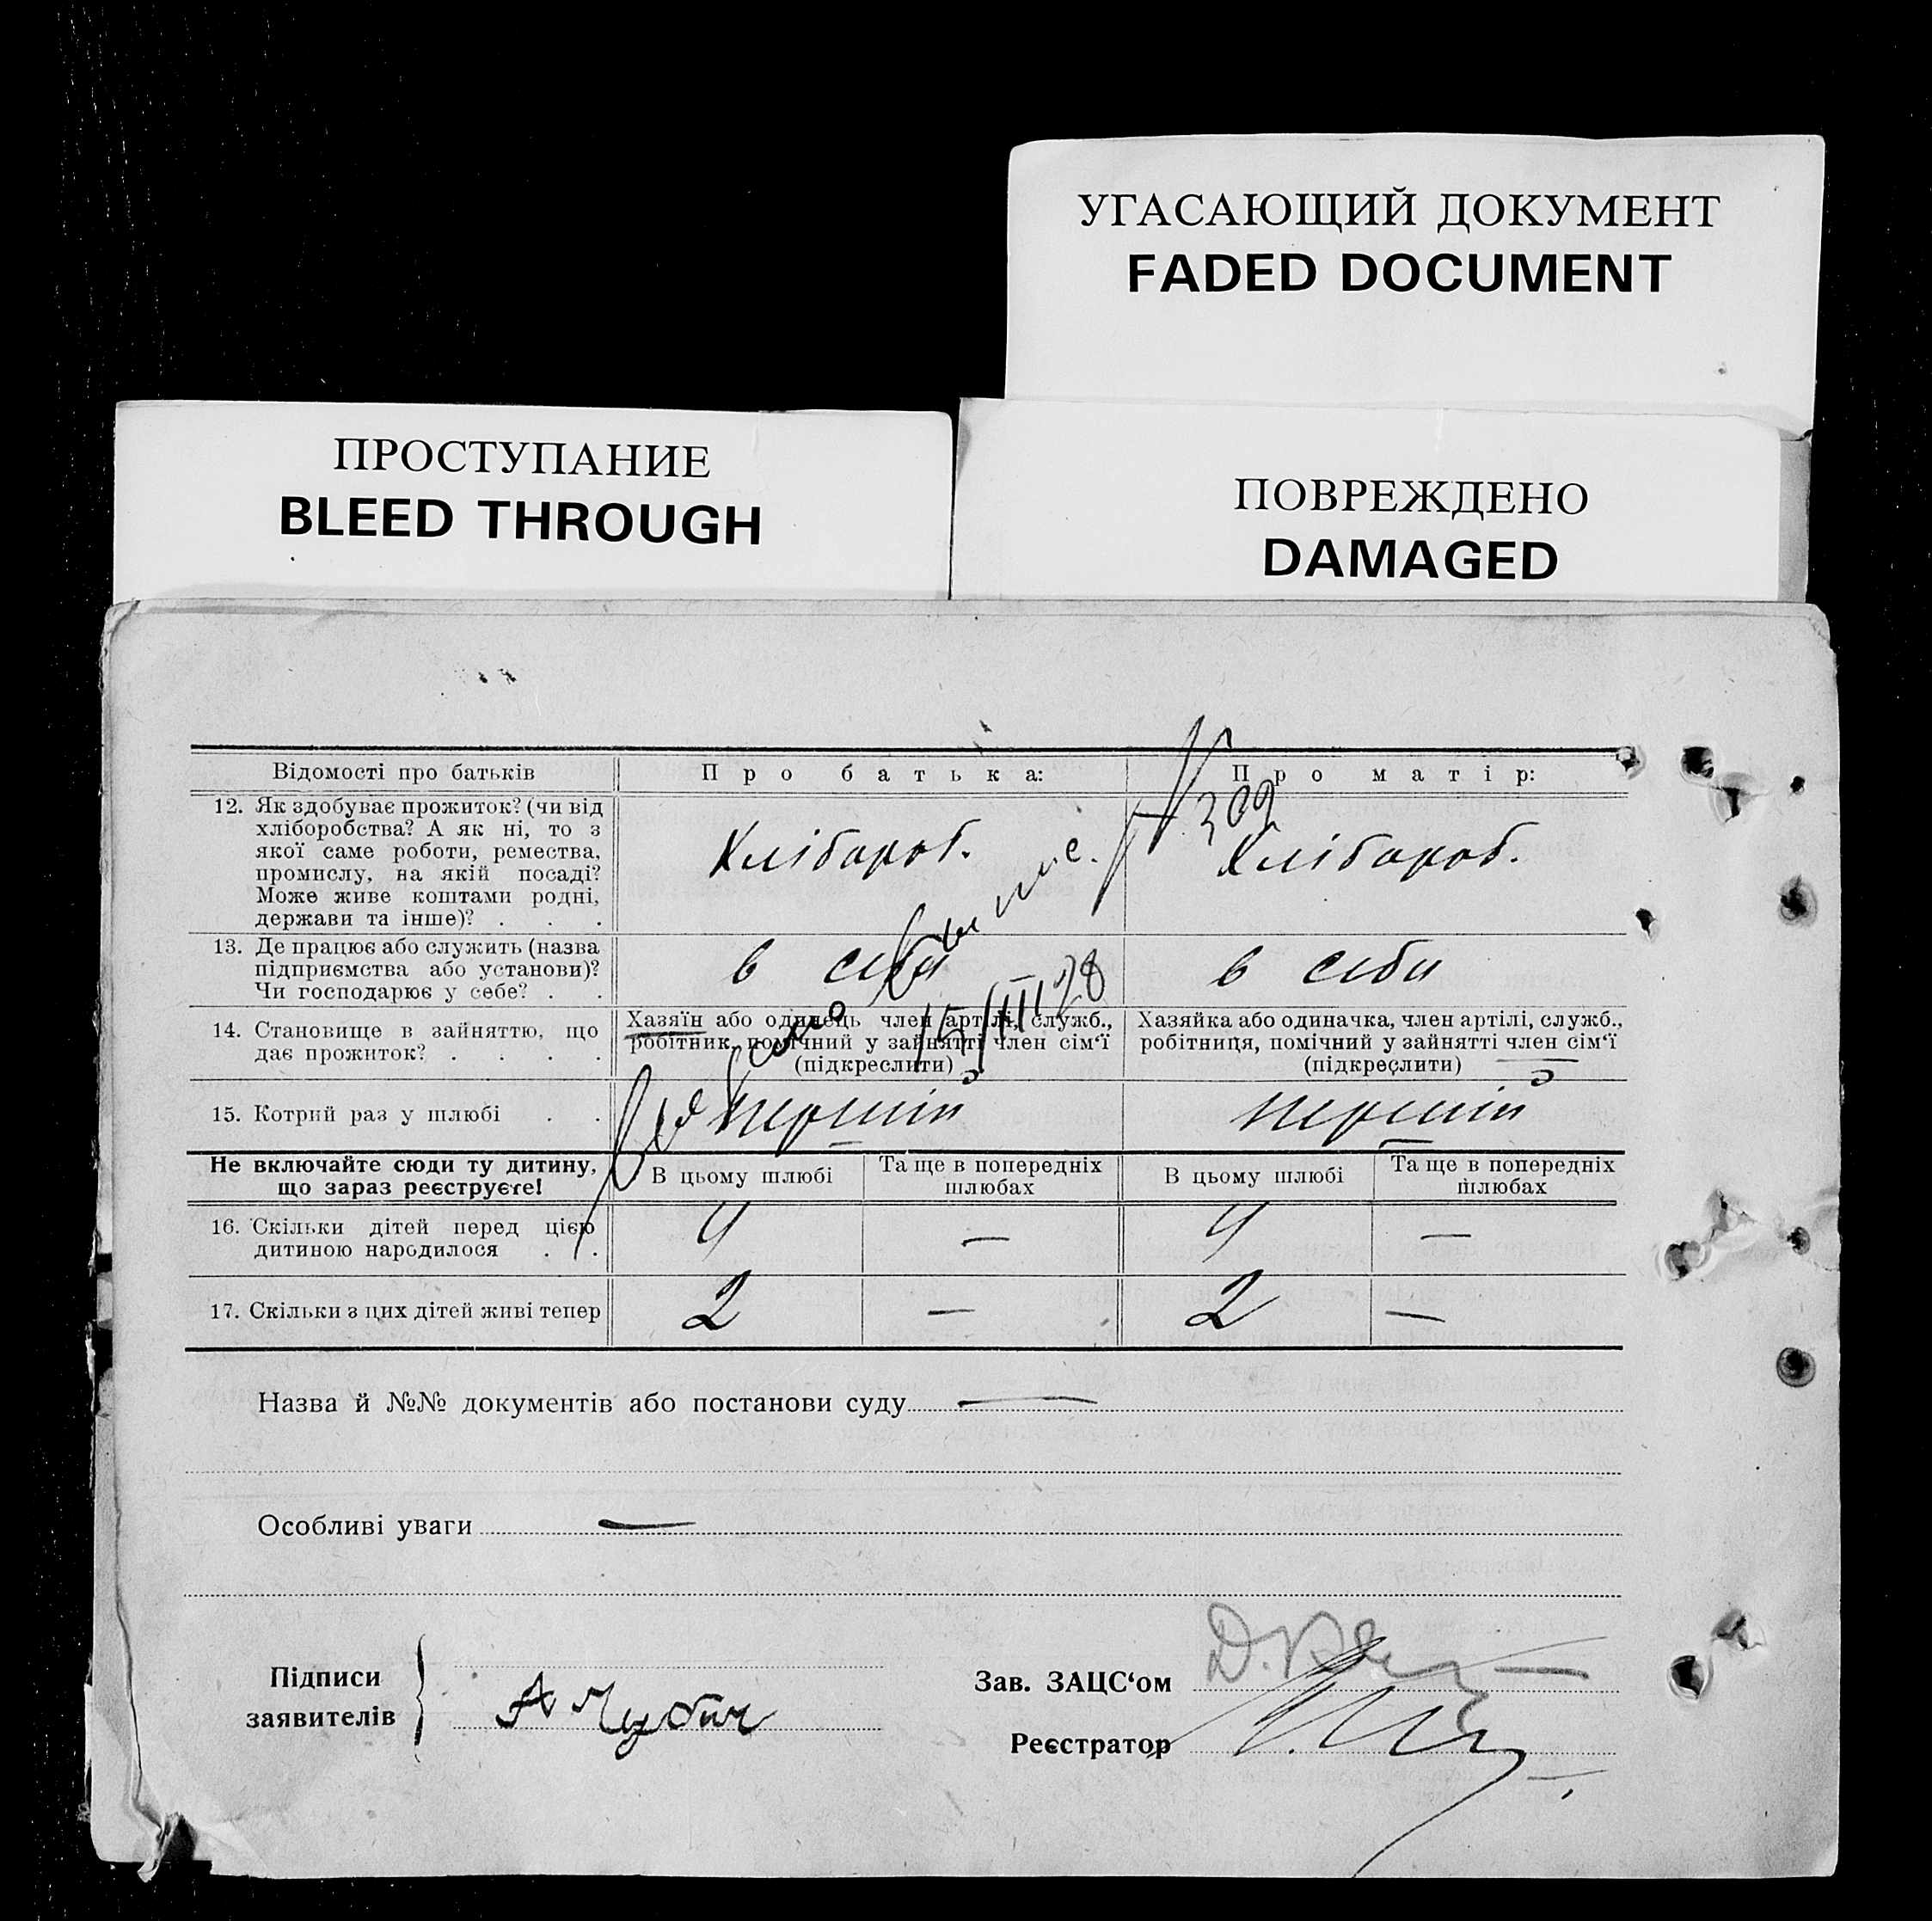 УГАСАЮЩИЙ ДОКУМЕНТ
FADED DOCUMENT
ПРОСТУПАНИЕ
BLEED THROUGH
ПОВРЕЖДЕНО
DAMAGED
Відомості про батьків
Про батька:
Про матір:
12. Як здобуває прожиток? (чи від
хліборобства? А як ні, то з
якої саме роботи, ремества,
промислу, на якій посаді?
Може живе коштами родні,
держави та інше)? . . .
Хлібороб.
Хлібороб.
№ 309
13. Де працює або служить (назва
підприємства або установи)?
Чи господарює у себе? . .
в себи
в себи
15/III 28
14. Становище в зайняттю, що
дає прожиток? . . . .
Хазяїн або одинець член артілі, служб.,
робітник, помічний у зайнятті член сім‘ї
(підкреслити)
Хазяйка або одиначка, член артілі, служб.,
робітниця, помічний у зайнятті член сім‘ї
(підкреслити)
15. Котрий раз у шлюбі . .
перший
перший
Не включайте сюди ту дитину,
що зараз реєструєте!
В цьому шлюбі
Та ще в попередніх
шлюбах
В цьому шлюбі
Та ще в попередніх
шлюбах
16. Скільки дітей перед цією
дитиною народилося . .
4
—
4
—
17. Скільки з цих дітей живі тепер
2
—
2
—
Назва й №№ документів або постанови суду —
Особливі уваги —
Підписи
заявителів
Зав. ЗАЦС‘ом
Реєстратор